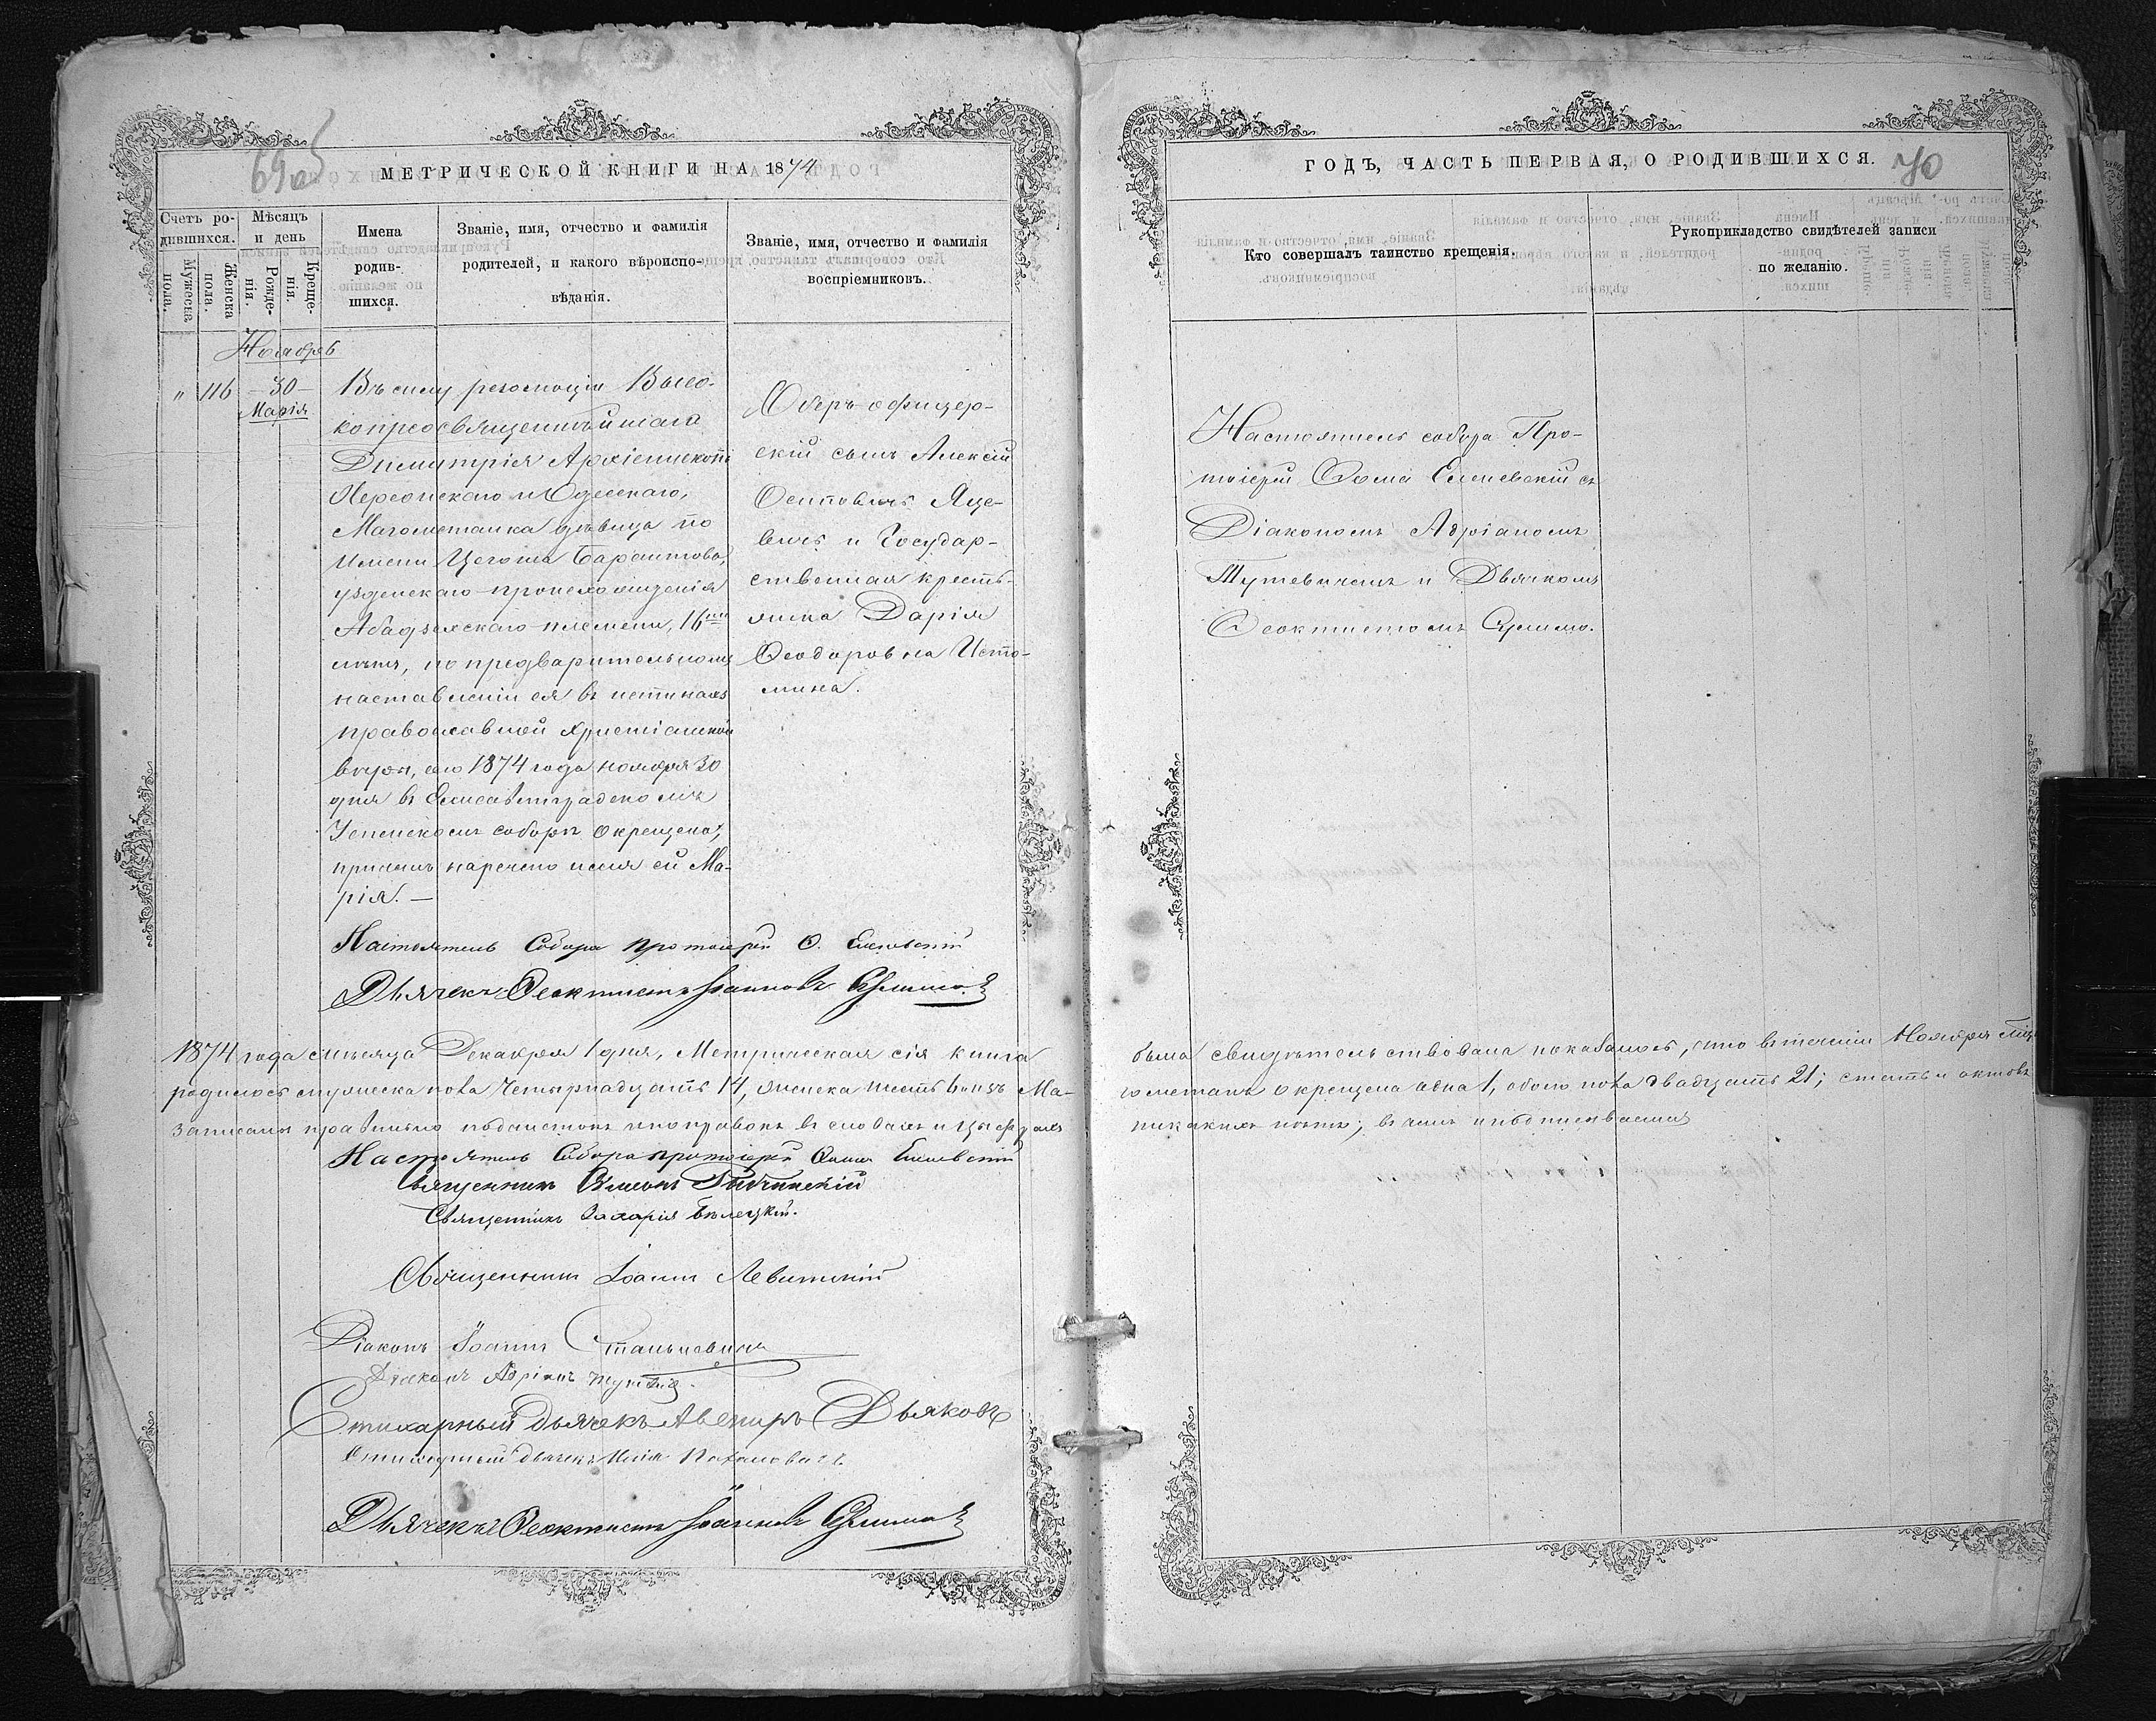 69 об
МЕТРИЧЕСКОЙ КНИГИ НА 1874
Счетъ ро-
дившихся.
Мужеска
пола.
Женска
пола.
Мѣсяцъ
и день
Рожде-
нія.
Креще-
нія.
Имена
родив-
шихся.
Званіе, имя, отчество и фамилія
родителей, и какого вѣроиспо-
вѣданія.
Званіе, имя, отчество и фамилія
воспріемниковъ.
Ноябрь
" 116 -30-
Марія
Въ силу резолюціи Высо-
копреосвященнѣйшаго
Димитрія Архіепископа
Херсонскаго и Одесскаго,
Магометанка дѣвица по
имени
узденскаго происхожденія
Абадзехскаго племени, 16ти
лѣтъ, по предварительномъ
наставленіи ея въ истинахъ
православной христіанской
вѣры, сего 1874 года ноября 30
дня въ Елисаветградскомъ
Успенскомъ соборѣ окрещена,
причемъ наречено имя ей Ма-
рія. —
Оберъ-офицер-
скій сынъ Алексій
Осиповичъ Яце-
вичъ и Государ-
ственная крестья-
янка Дарія
Ѳеодоровна Исто-
мина.
Настоятель Собора протоіерей Ѳ. Елисевскій
Дьячекъ Ѳеоктистъ Іоанновъ
1874 года мѣсяца Декабря 1 дня, Метрическая сія книга
родилось мужеска пола Четырнадцать 14, женска шесть 6 изъ Ма-
записаны правильно подчистокъ и поправокъ въ словахъ и цыфрахъ
Настоятель Собора протоіерей Ѳома Елисевскій
Священникъ Симеонъ
Священникъ Захарія Бѣлецкій.
Священникъ Іоаннъ Левитскій
Діаконъ Іоаннъ Станкевичъ
Діаконъ Адріанъ Тутевичъ.
Стихарный дьячекъ Авениръ Дьяковъ
Стихарный дьячекъ Илія
Дьячекъ Ѳеоктистъ Іоанновъ
ГОДЪ, ЧАСТЬ ПЕРВАЯ, О РОДИВШИХСЯ.
70
Кто совершалъ таинство крещенія.
Рукоприкладство свидѣтелей записи
по желанію.
Настоятель собора Про-
тоіерей Ѳома Елисевскій съ
Діакономъ Адріаномъ
Тутевичемъ и Дьячкомъ
Ѳеоктистомъ
была свидѣтельствована показалось, что въ теченіи Ноября мѣс.
гометанъ окрещена одна 1, обоего пола двадцать 21; статьи актовъ
никакихъ нѣтъ; въ чемъ и подписываемся